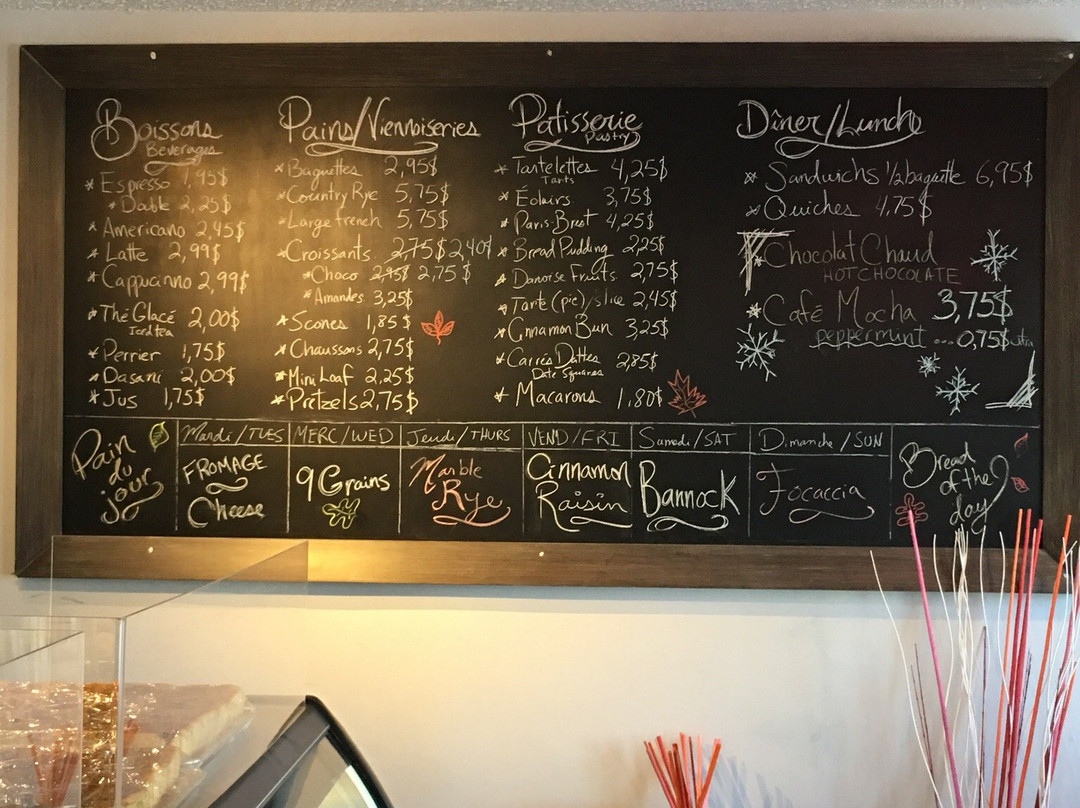 Boissons
Beverages
* Espresso 1,95$
* Double 2,25$
* Americano 2,45$
* Latte 2,99$
* Cappuccinno 2,99$
* Thé Glacé 2,00$
Iced tea
* Perrier 1,75$
* Dasani 2,00$
* Jus 1,75$
Pains/Viennoiseries
* Baguettes 2,95$
* Country Rye 5,75$
* Large french 5,75$
* Croissants 2,75$ 2,40$
* Choco 2,95$ 2,75$
* Amandes 3,25$
* Scones 1,85$
* Chaussons 2,75$
* Mini Loaf 2,25$
* Pretzels 2,75$
Patisserie
Pastry
* Tartelettes 4,25$
Tarts
* Éclairs 3,75$
* Paris-Brest 4,25$
* Bread Pudding 2,25$
* Danoise Fruits 2,75$
* Tarte (pie)/slice 2,45$
* Cinnamon Bun 3,25$
* Carrés Dattes 2,85$
Date Squares
* Macarons 1,80$
Dîner/Lunch
* Sandwichs 1/2 baguette 6,95$
* Quiches 4,75$
* Chocolat Chaud
HOT CHOCOLATE
* Café Mocha 3,75$
peppermint ... 0,75$ extra
Pain
du
jour
Mardi/TUES
FROMAGE
Cheese
MERC/WED
9 Grains
Jeudi/THURS
Marble
Rye
VEND/FRI
Cinnamon
Raisin
Samedi/SAT
Bannock
Dimanche/SUN
Focaccia
Bread
of the
day